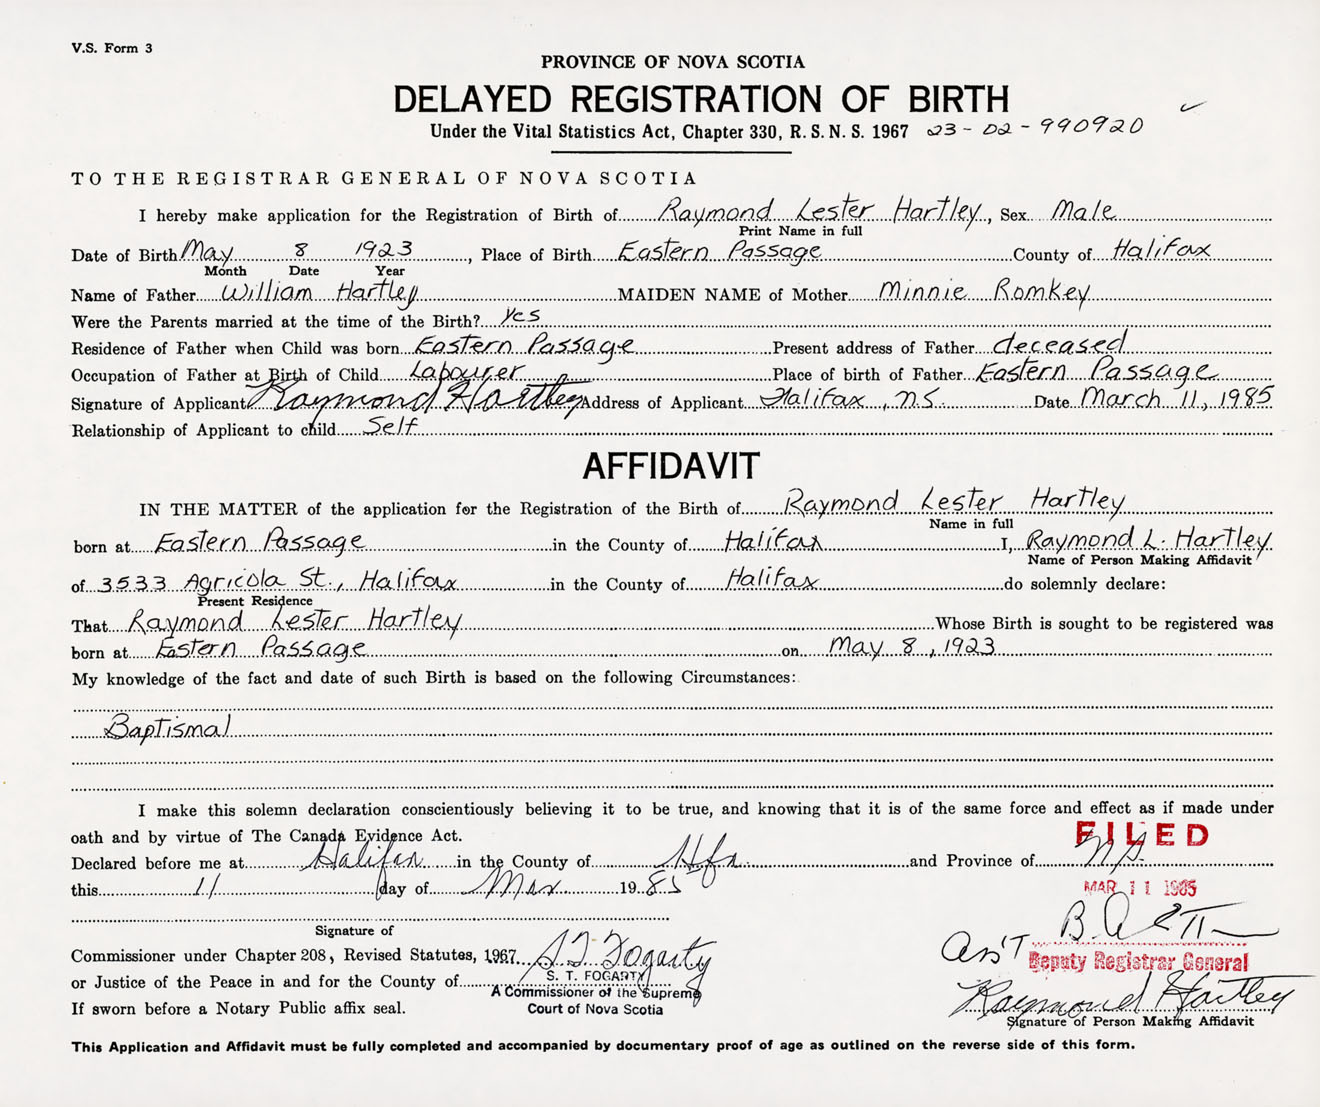 V.S. Form 3
PROVINCE OF NOVA SCOTIA
DELAYED REGISTRATION OF BIRTH
Under the Vital Statistics Act, Chapter 330, R.S.N.S. 1967 23-02-990920
TO THE REGISTRAR GENERAL OF NOVA SCOTIA
I hereby make application for the Registration of Birth of Raymond Lester Hartley, Sex Male
Print Name in full
Date of Birth May 8 1923, Place of Birth Eastern Passage County of Halifax
Month Date Year
Name of Father William Hartley MAIDEN NAME of Mother Minnie Romkey
Were the Parents married at the time of the Birth? Yes
Residence of Father when Child was born Eastern Passage Present address of Father deceased
Occupation of Father at Birth of Child Labourer Place of birth of Father Eastern Passage
Signature of Applicant Raymond Hartley Address of Applicant Halifax, N.S. Date March 11, 1985
Relationship of Applicant to child Self
AFFIDAVIT
IN THE MATTER of the application for the Registration of the Birth of Raymond Lester Hartley
Name in full
born at Eastern Passage in the County of Halifax I, Raymond L. Hartley
Name of Person Making Affidavit
of 3533 Agricola St., Halifax in the County of Halifax do solemnly declare:
Present Residence
That Raymond Lester Hartley Whose Birth is sought to be registered was
born at Eastern Passage on May 8, 1923
My knowledge of the fact and date of such Birth is based on the following Circumstances:
Baptismal
I make this solemn declaration conscientiously believing it to be true, and knowing that it is of the same force and effect as if made under
oath and by virtue of The Canada Evidence Act.
FILED
Declared before me at Halifax in the County of Hfx and Province of N.S.
this 11 day of Mar 1985
MAR 11 1985
Signature of
Commissioner under Chapter 208, Revised Statutes, 1967 S T Fogarty
Ass'T
Deputy Registrar General
or Justice of the Peace in and for the County of
S. T. FOGARTY
A Commissioner of the Supreme
Court of Nova Scotia
If sworn before a Notary Public affix seal.
Raymond Hartley
Signature of Person Making Affidavit
This Application and Affidavit must be fully completed and accompanied by documentary proof of age as outlined on the reverse side of this form.